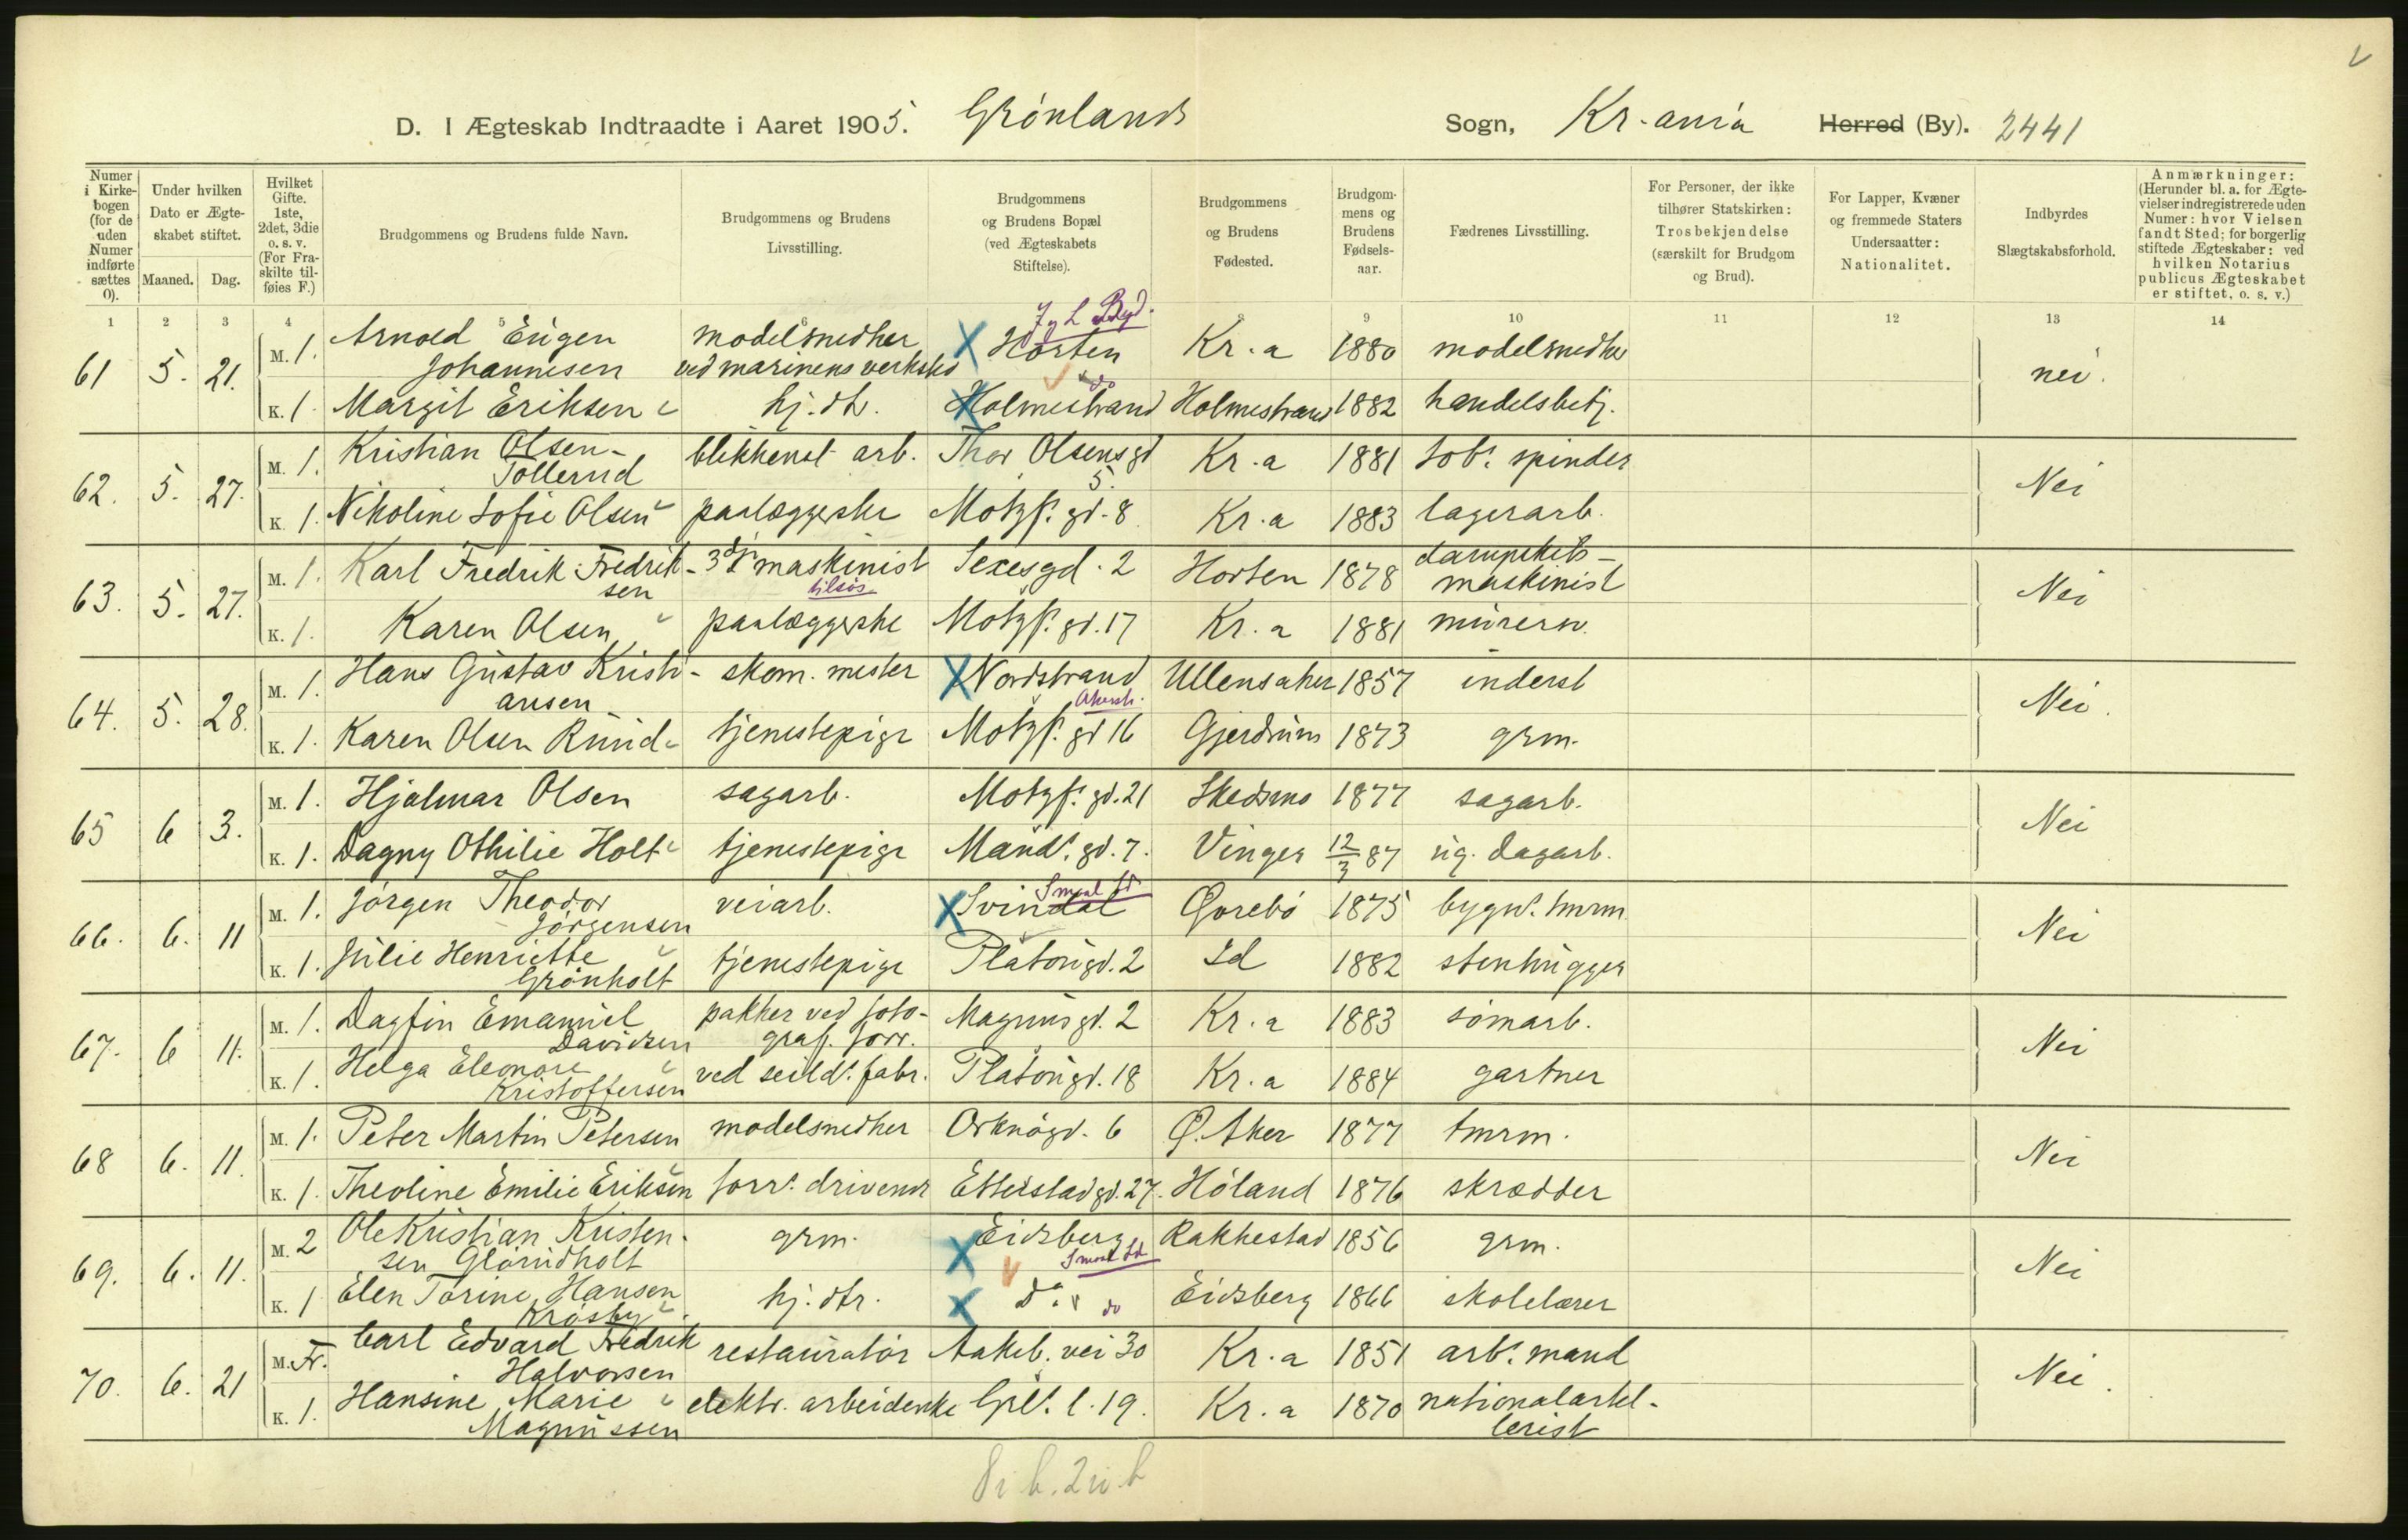 D. I Ægteskab Indtraadte i Aaret 1905. Grönlands Sogn, Kr.ania Herred (By). 2441
Numer i Kirkebogen (for de uden Numer indførte sættes 0).
Under hvilken Dato er Ægteskabet stiftet.
Maaned. Dag.
Hvilket Gifte. 1ste, 2det, 3die o. s. v. (For Fraskilte tilføies F.)
Brudgommens og Brudens fulde Navn.
Brudgommens og Brudens Livsstilling.
Brudgommens og Brudens Bopæl (ved Ægteskabets Stiftelse).
Brudgommens og Brudens Fødested.
Brudgommens og Brudens Fødselsaar.
Fædrenes Livsstilling.
For Personer, der ikke tilhører Statskirken: Trosbekjendelse (særskilt for Brudgom og Brud).
For Lapper, Kvæner og fremmede Staters Undersaatter: Nationalitet.
Indbyrdes Slægtskabsforhold.
Anmærkninger: (Herunder bl. a. for Ægtevielser indregistrerede uden Numer: hvor Vielsen fandt Sted; for borgerlig stiftede Ægteskaber: ved hvilken Notarius publicus Ægteskabet er stiftet, o. s. v.)
1 2 3 4 5 6 8 9 10 11 12 13 14
61 5. 21. M. 1. Arnold Eugen Johannesen modelsnedker ved marinens verksted Horten Kr.a 1880 modelsnedker nei.
K. 1. Margit Eriksen hj. dtr. Holmestrand do Holmestrand 1882 handelsbetj.
62. 5. 27. M. 1. Kristian Olsen-Tollerud blikkensl. arb. Thor Olsens gd 5. Kr.a 1881 tobs. spinder Nei
K. 1. Nikoline Sofie Olsen paalæggerske Motzf. gd. 8 Kr.a 1883 lagerarb.
63. 5. 27. M. 1. Karl Fredrik Fredriksen 3dje maskinist tilsös Sexesgd. 2 Horten 1878 dampskibs-maskinist Nei
K. 1. Karen Olsen paalæggerske Motzf. gd. 17 Kr.a 1881 murersv.
64. 5. 28. M. 1. Hans Gustav Kristiansen skom. mester Nordstrand Akersh. Ullensaker 1857 inderst Nei.
K. 1. Karen Olsen Rund tjenestepige Motzf. gd 16 Gjerdrum 1873 grm.
65 6 3. M. 1. Hjalmar Olsen sagarb. Motzf. gd. 21 Skedsmo 1877 sagarb. Nei
K. 1. Dagny Othilie Holt tjenestepige Mands. gd. 7. Vinger 12/3 87 sig. dagarb.
66. 6. 11 M. 1. Jörgen Theodor Jörgensen veiarb. Svindal Smaal Gorebö 1875 bygn. tmrm. Nei
K. 1. Julie Henriette Grönholt tjenestepige Platougd. 2 Id 1882 stenhugger
67. 6 11. M. 1. Dagfin Emanuel Davidsen pakker ved foto-graf. forr. Magnusgd. 2 Kr.a 1883 sömarb. Nei
K. 1. Helga Eleonore Kristoffersen ved seilds. fabr. Platougd. 18 Kr.a 1884 gartner
68 6. 11. M. 1. Peter Martin Petersen modelsnedker Orknögd. 6 Ö. Aker 1877 tmrm. Nei
K. 1. Theoline Emilie Eriksen forr. drivende Etterstadgd. 27. Höland 1876 skrædder
69. 6. 11. M. 2 Ole Kristian Kristensen Glörudholt grm. Eidsberg Smaal Rakkestad 1856 grm. Nei
K. 1 Elen Torine Hansen Krosby hj. dtr. Do. do Eidsberg 1866 skolelærer
70. 6. 21 M. Fr. Carl Edvard Fredrik Halvorsen restauratör Aakeb. vei 30 Kr.a 1851 arbs. mand Nei.
K. 1. Hansine Marie Magnussen elektr. arbeiderske Grl. l. 19. Kr.a 1870 nationalartillerist